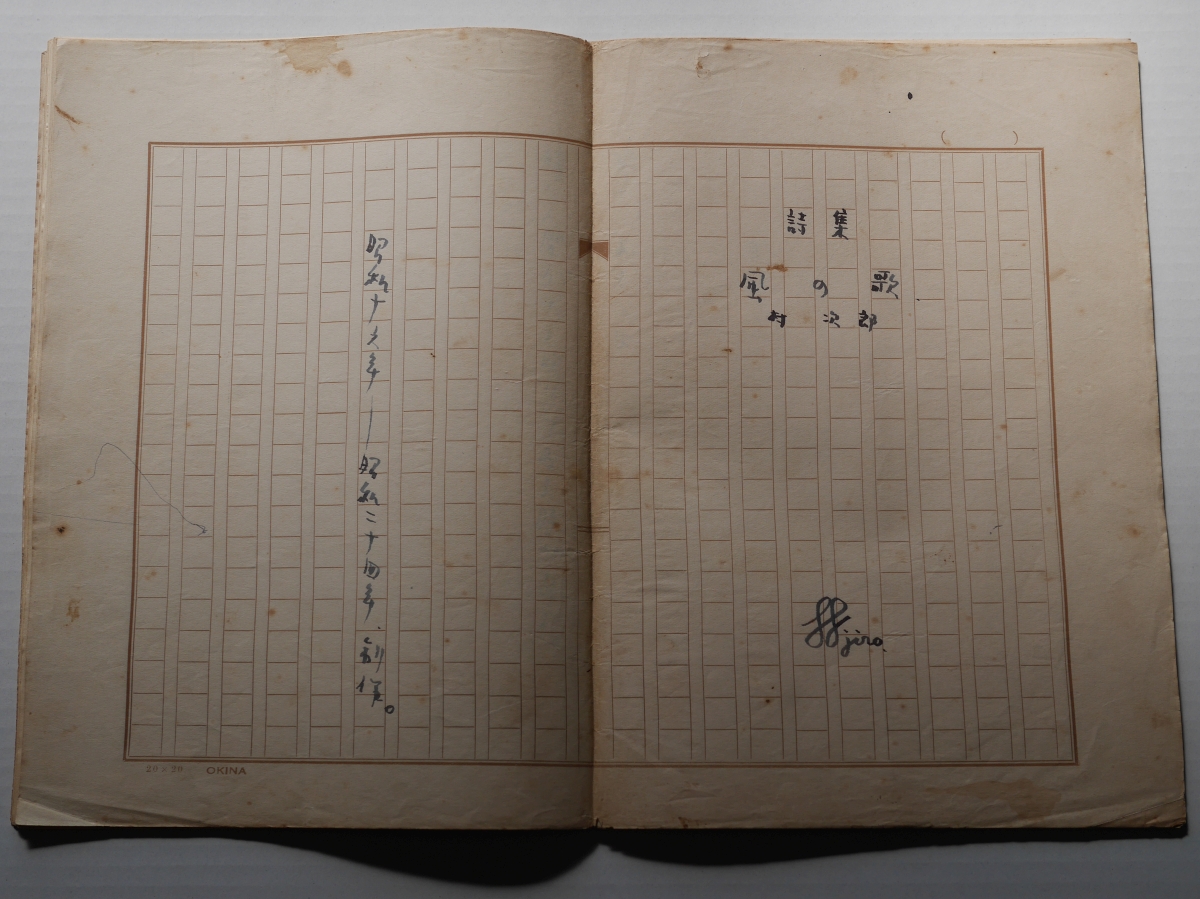 詩集
風の歌
村次郎
jiro.
昭和十六年―昭和二十四年.創作。
20×20 OKINA